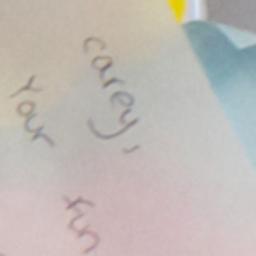 carey,
Your
fun